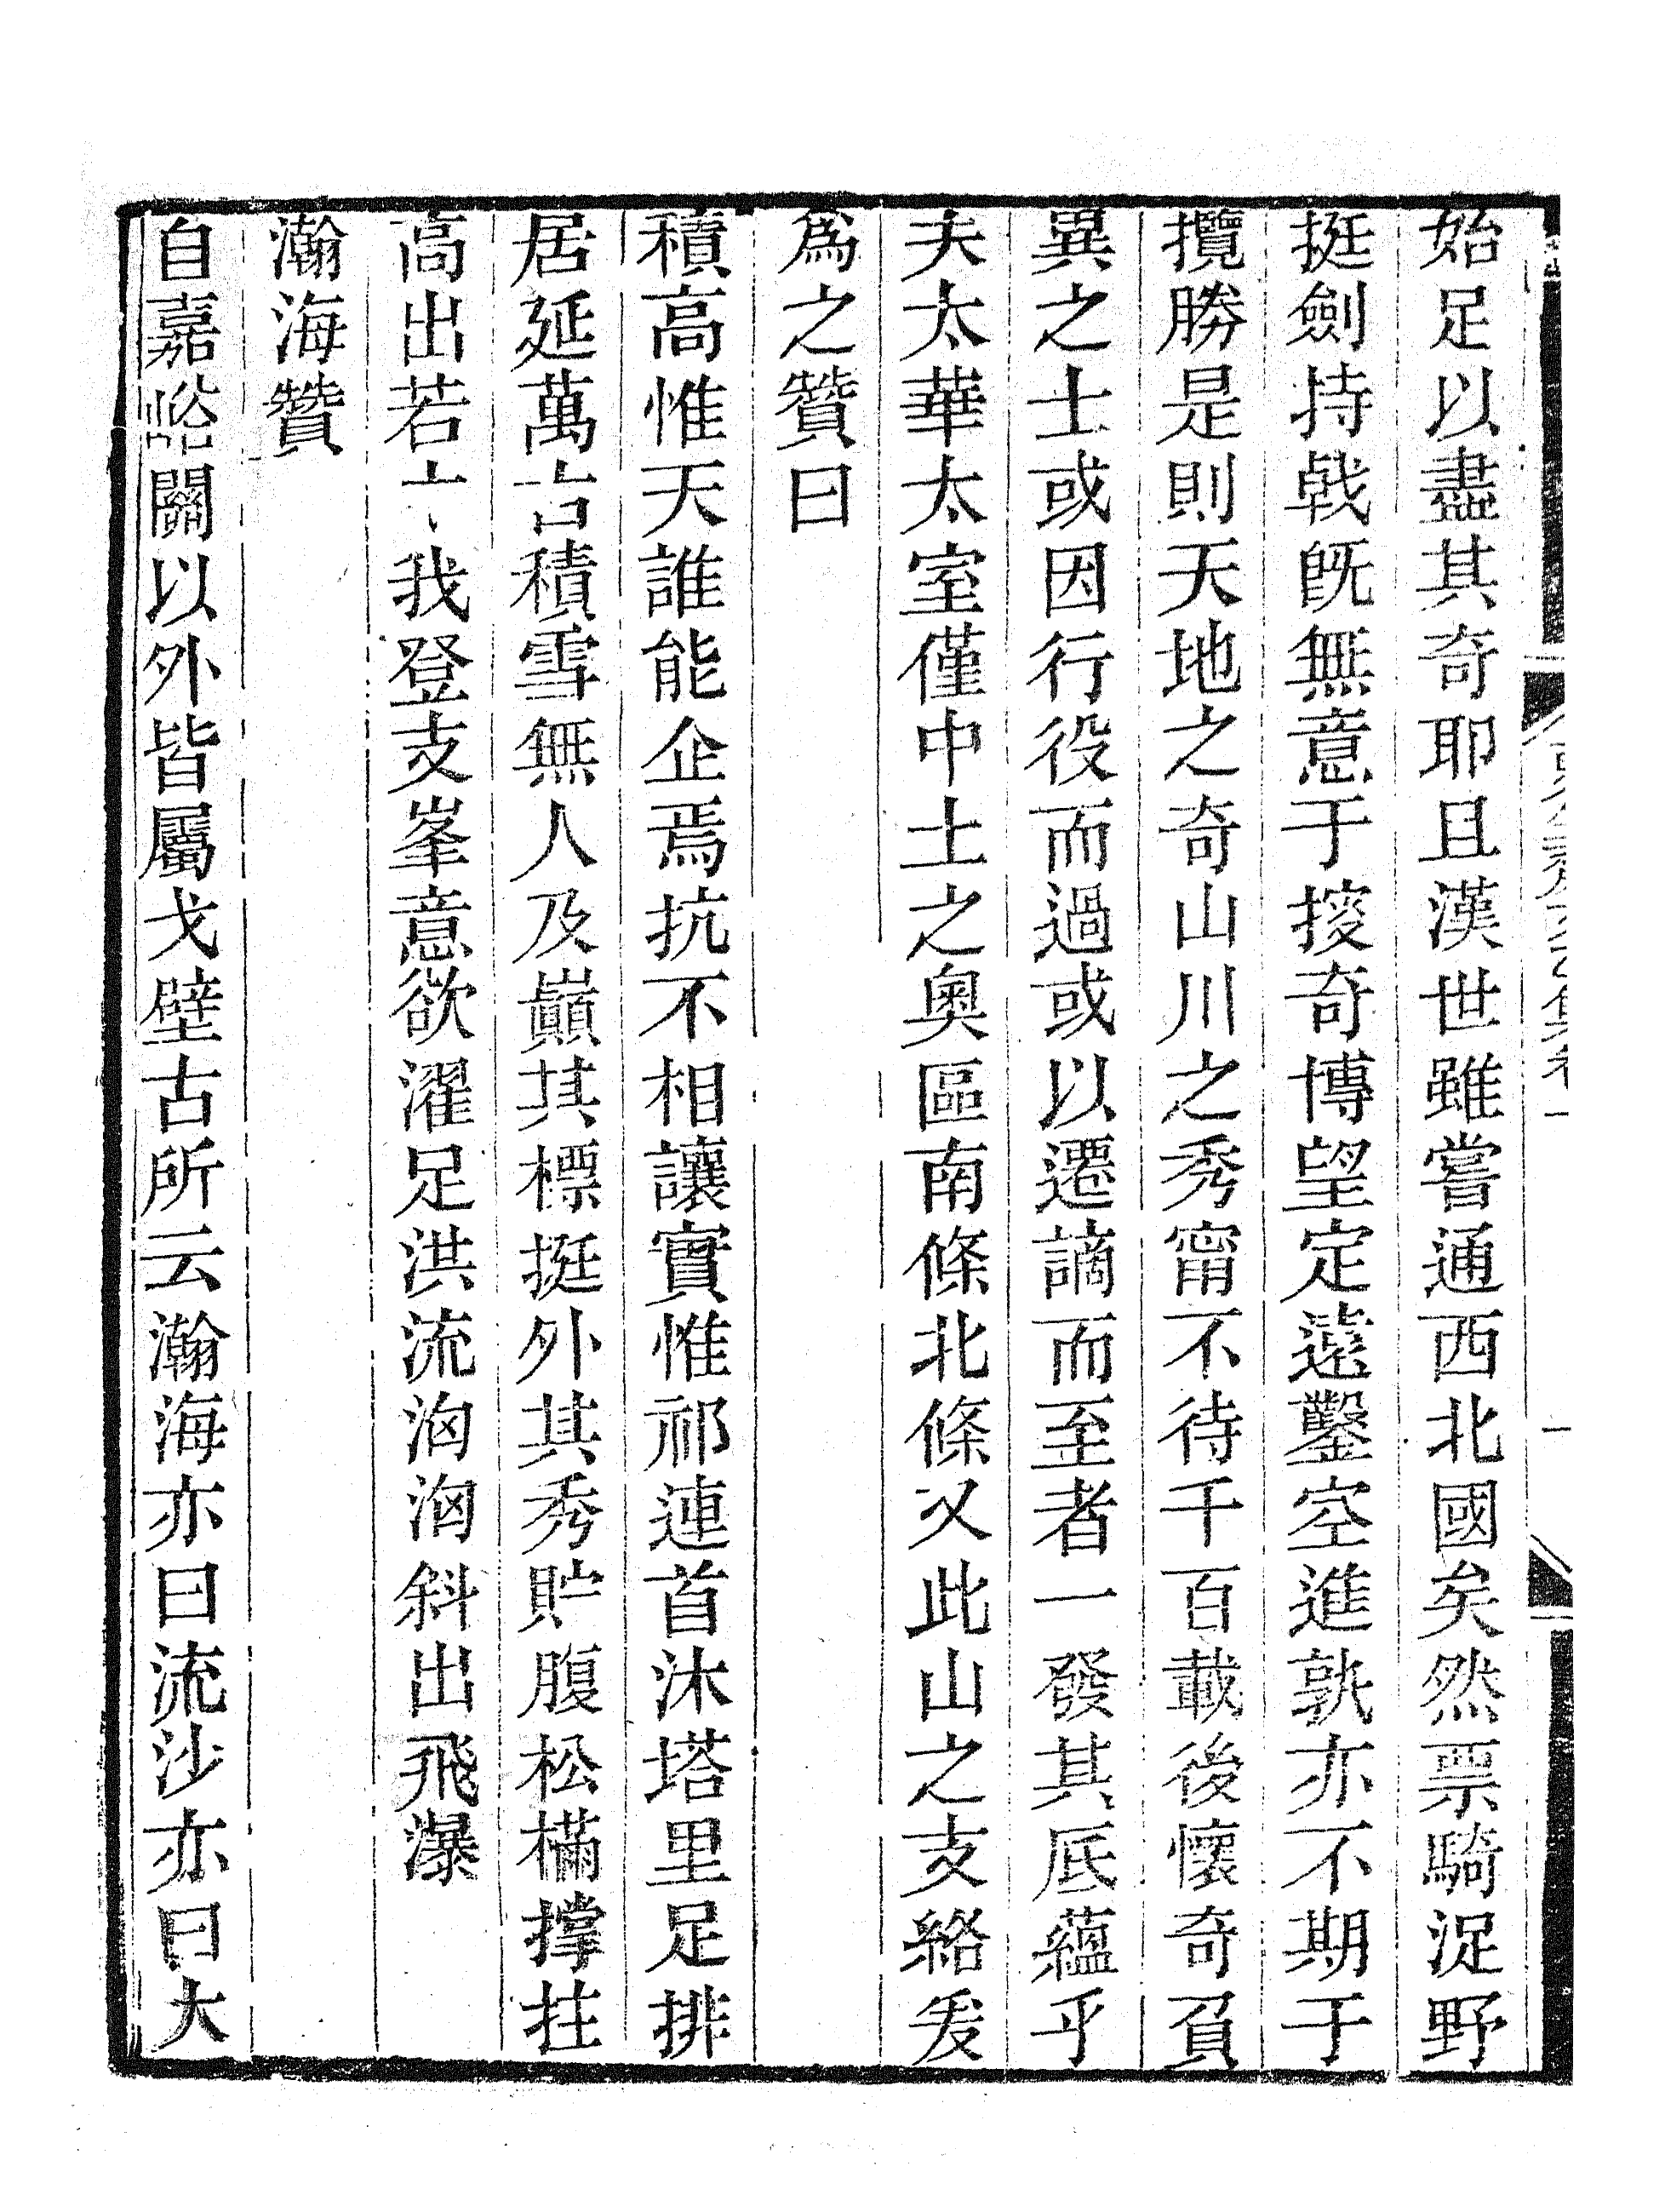 始足以盡其奇耶且漢世雖嘗通西北國矣然票騎浞野
挺劍持戟旣無意于挼奇博望定遠鑿空進孰亦不期于
攬勝是則天地之奇山川之秀甯不待千百載後懷奇負
異之士或因行役而過或以遷謫而至者一發其底蘊乎
夫太華太室僅中土之奧區南條北條又此山之支絡爰
爲之贊曰
積高惟天誰能企焉抗不相讓實惟祁連首沐塔里足排
居延萬古積雪無人及巔其標挺外其秀貯腹松樠撐拄
高出若木我登支峯意欲濯足洪流洶洶斜出飛瀑
瀚海贊
自嘉峪關以外皆屬戈壁古所云瀚海亦曰流沙亦曰大